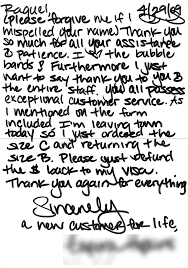 Raquel 4/29/09
(please forgive me if I
mispelled your name) Thank you
so much for all your assistance
& patience. I ♡ the bubble
bands! Furthermore I just
want to say thank you to you &
the entire staff. You all possess
exceptional customer service. As
I mentioned on the form
included I'm leaving town
today so I just ordered the
size C and returning the
size B. Please just refund
the $ back to my visa.
Thank you again for everything
Sincerely
a new customer for life,